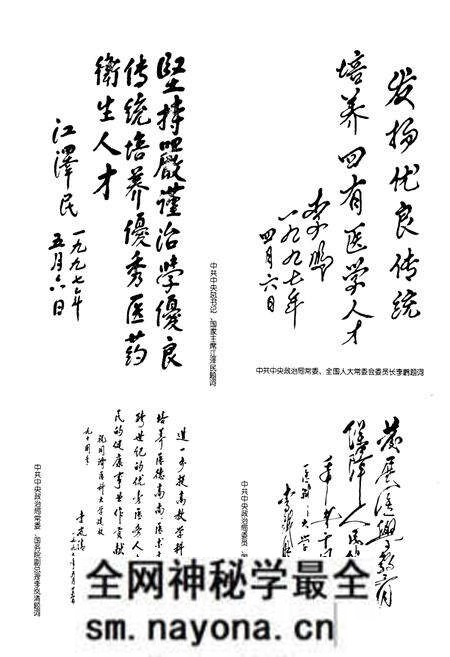 堅持嚴謹治學優良
传统培养優秀医药
衛生人才
江澤民
一九九七年
五月六日
中共中央总书记、国家主席江泽民题词
发扬优良传统
培养四有医学人才
李鹏
一九九七年
四月六日
中共中央政治局常委、全国人大常委会委员长李鹏题词
进一步提高教学科
培养医德高尚医术
跨世纪的优秀医务人
民的健康事业作贡献
祝同济医科大学建校
九十周年
李岚清
中共中央政治局常委、国务院副总理李岚清题词
發展医学教育
保障人民
中共中央政治局委员、
全网神秘学最全
sm.nayona.cn